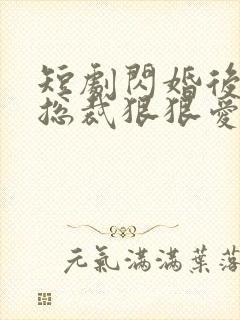 短劇閃婚後
總裁狠狠愛
元氣滿滿葉落